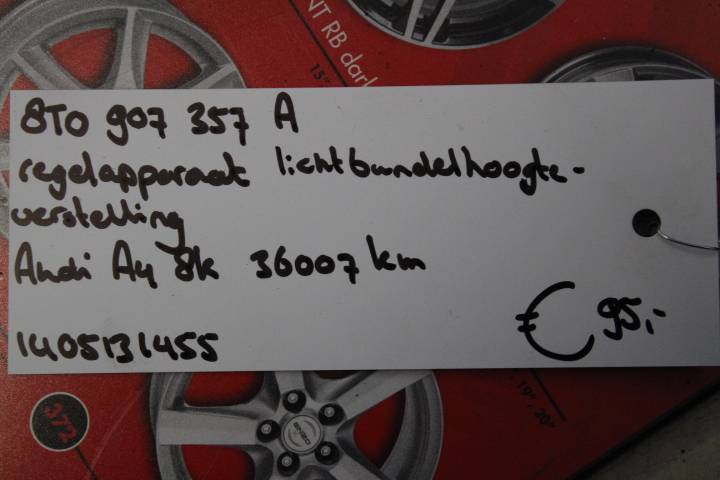 NT RB dark
15"
8T0 907 357 A
regelapparaat lichtbundelhoogte-
verstelling
Audi A4 8k 36007 km
€ 95,-
1405131455
372
19" . 20"